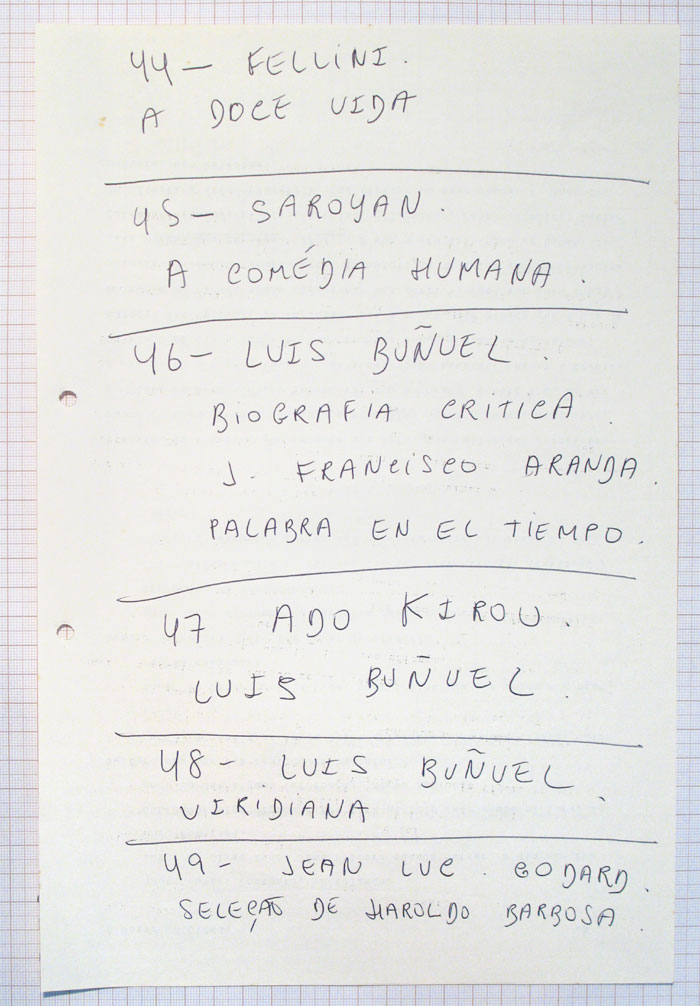 44 — FELLINI.
A DOCE VIDA
45 - SAROYAN.
A COMÉDIA HUMANA.
46 - LUIS BUÑUEL.
BIOGRAFIA CRITICA.
J. FRANCISCO ARANDA.
PALABRA EN EL TIEMPO.
47 ADO KIROU.
LUIS BUÑUEL.
48 - LUIS BUÑUEL
VIRIDIANA
49 - JEAN LUC. GODARD.
SELEÇÃO DE HAROLDO BARBOSA